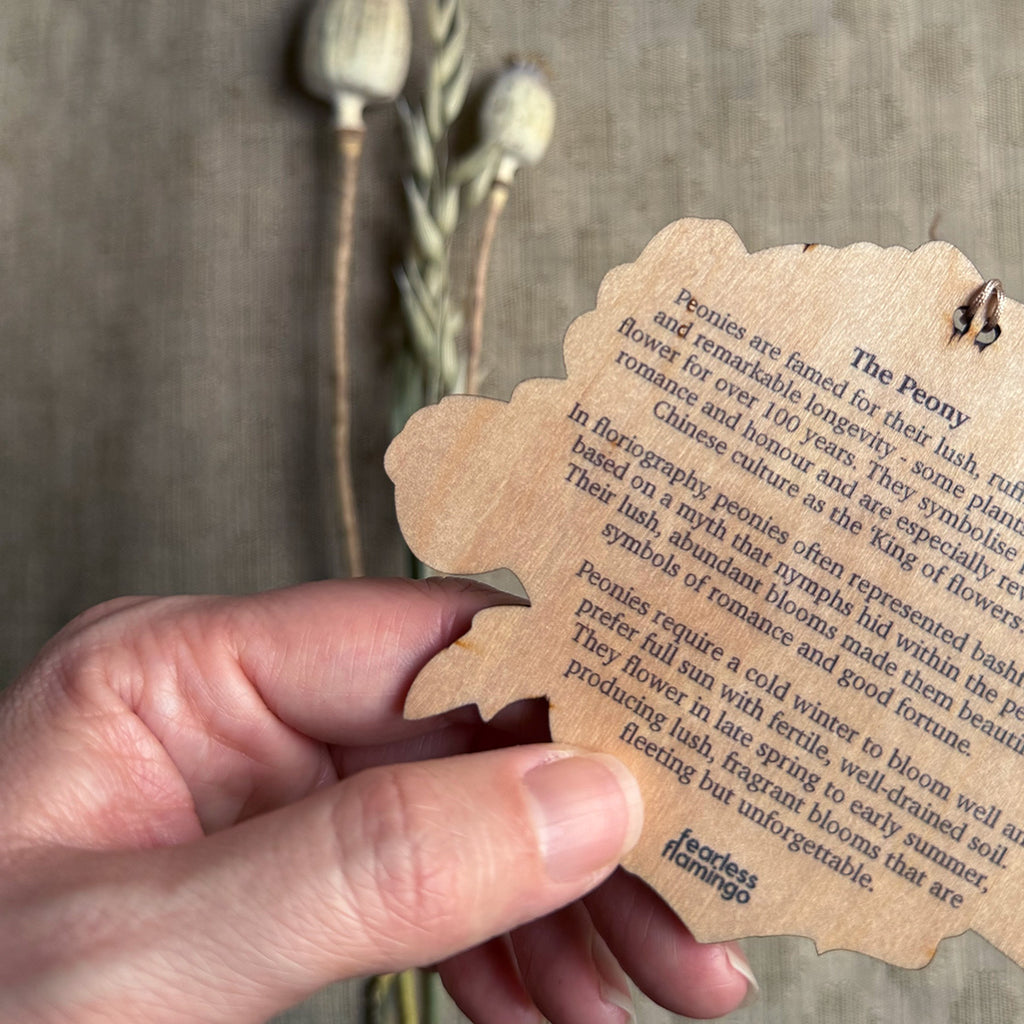 The Peony
Peonies are famed for their lush,
and remarkable longevity - some plants
flower for over 100 years. They symbolise
romance and honour and are especially
Chinese culture as the 'King of flowers'.
In floriography, peonies often represented
based on a myth that nymphs hid within the
Their lush, abundant blooms made them
symbols of romance and good fortune.
Peonies require a cold winter to bloom well
prefer full sun with fertile, well-drained soil.
They flower in late spring to early summer,
producing lush, fragrant blooms that are
fleeting but unforgettable.
fearless
flamingo